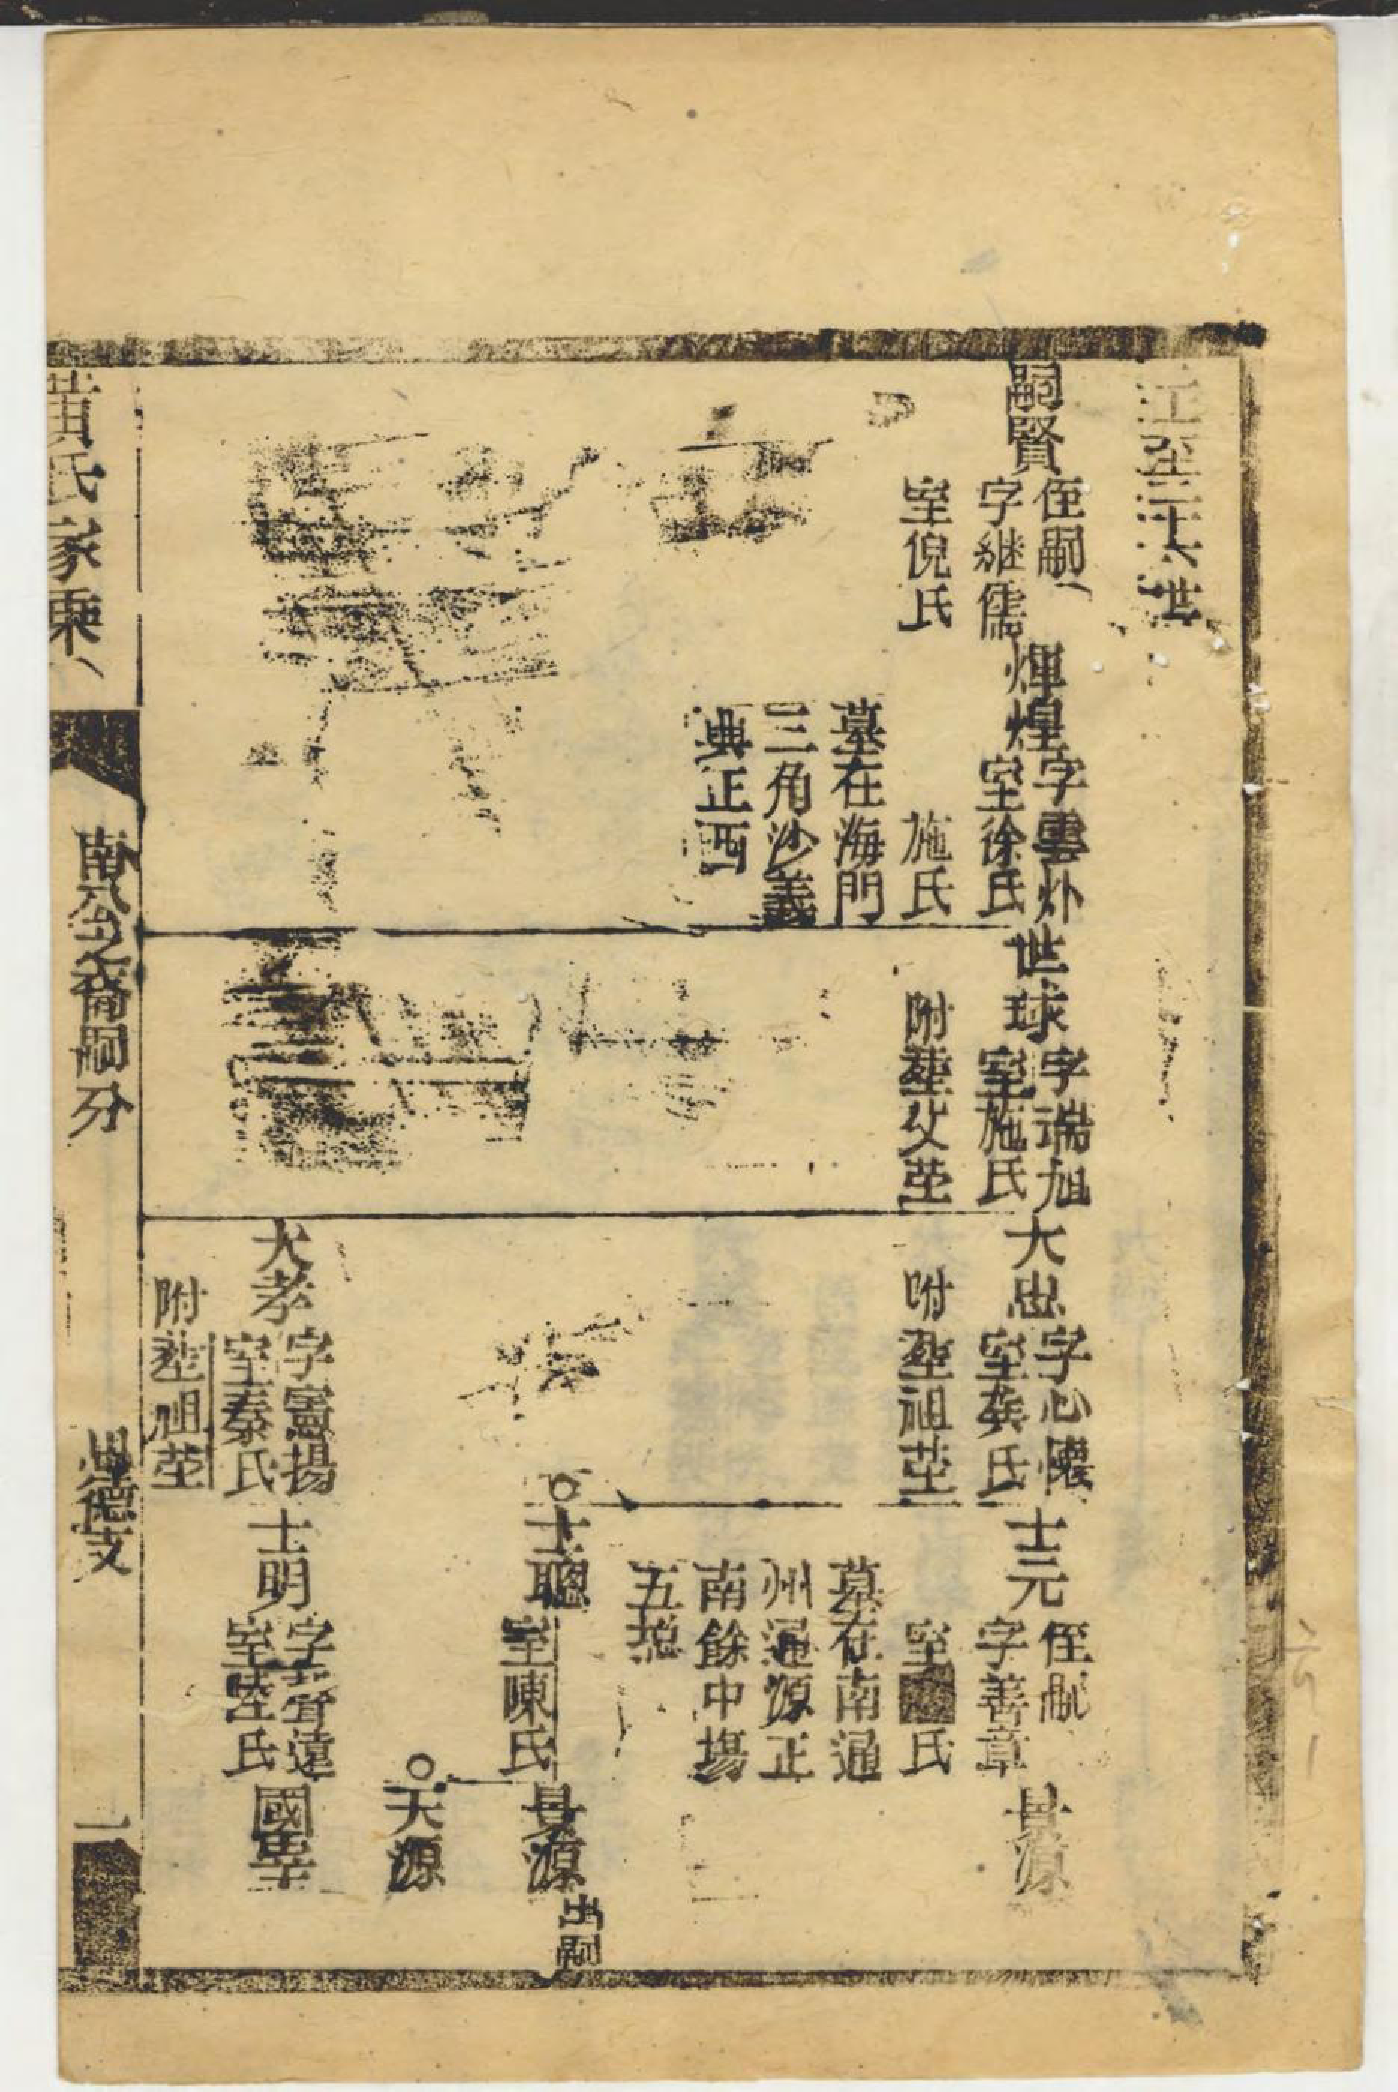 至三十六世
嗣賢
侄嗣
字繼儒
室倪氏
煇煌
字雲外
室徐氏
施氏
墓在海門
三角沙義
典正西
世球
字瑞旭
室施氏
附塟父茔
大忠
字心懷
室龔氏
附塟祖茔
士元
侄嗣
字善章
室氏
墓在南通
州通源正
南餘中場
五
昙源
士聰
室陳氏
昙源
出嗣
天源
大孝
字憲揚
室秦氏
附塟祖茔
士明
字聲遠
室陸氏
國
黃氏家乘
南公之裔嗣分
忠德支
一